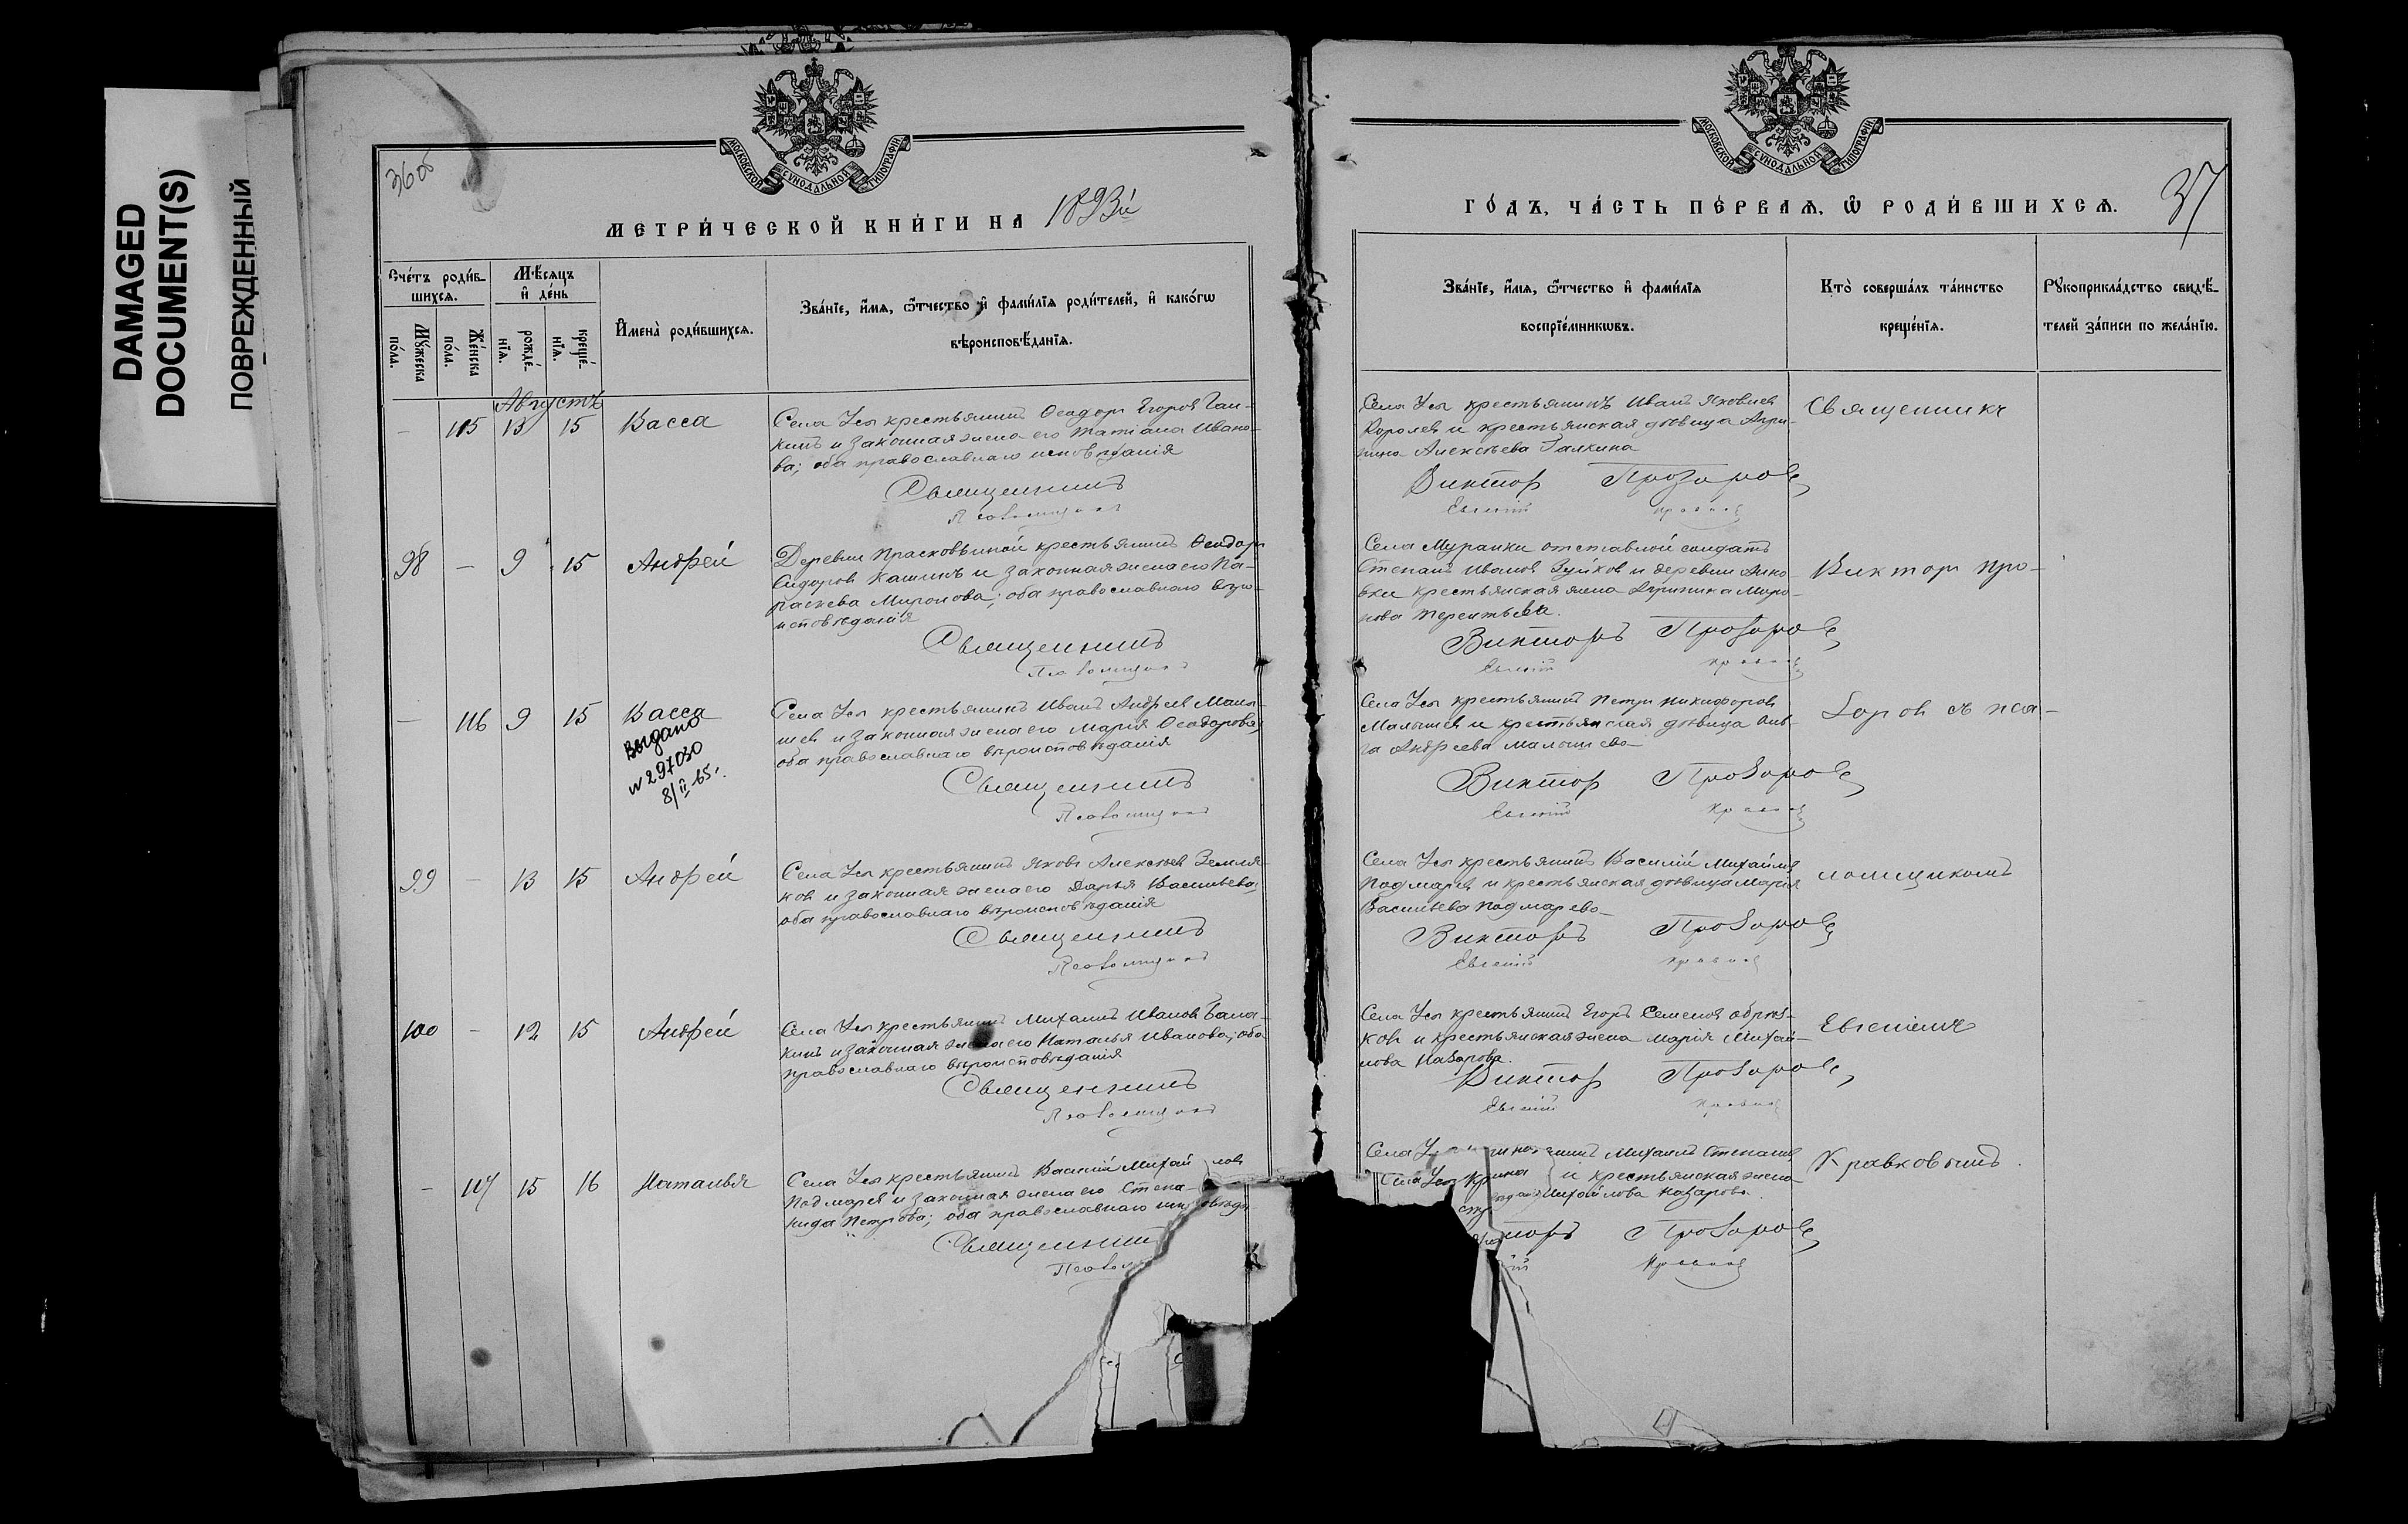 DAMAGED
DOCUMENT(S)
ПОВРЕЖДЕННЫЙ
МОСКОВСКОЙ СѴНОДАЛЬНОЙ ТИПОГРАФІИ
36об
МЕТРИ́ЧЕСКОЙ КНИ́ГИ НА 1893й
Счéтъ роди́в-
шихсѧ.
Мѣ́сѧцъ
и҆ дéнь
И҆менà роди́вшихсѧ.
Звáнїе, и҆́мѧ, ѻ҆́тчество и҆ фами́лїѧ роди́телей, и҆ какóгѡ
вѣроисповѣ́данїѧ.
Мꙋ́жеска
пóла.
Жéнска
пóла.
рождé-
нїѧ.
крещé-
нїѧ.
Августъ
— 115 13 15 Васса
Села Усы крестьянинъ Ѳеодоръ Егоровъ Гал-
кинъ и законная жена его Татіана Ивано-
ва; оба православнаго исповѣданія
Священникъ
Псаломщикъ
98 — 9 15 Андрей
Деревни Прасковьиной крестьянинъ Ѳеодоръ
Сидоровъ Кашинъ и законная жена его Па-
раскева Миронова; оба православнаго вѣро-
исповѣданія
Священникъ
Псаломщикъ
— 116 9 15 Васса
выдано
№ 297030
8/II-65г.
Села Усы крестьянинъ Иванъ Андреевъ Малы-
шевъ и законная жена его Марія Ѳеодорова;
оба православнаго вѣроисповѣданія
Священникъ
Псаломщикъ
99 — 13 15 Андрей
Села Усы крестьянинъ Яковъ Алексѣевъ Земля-
ковъ и законная жена его Дарья Васильева;
оба православнаго вѣроисповѣданія
Священникъ
Псаломщикъ
100 — 12 15 Андрей
Села Усы крестьянинъ Михаилъ Ивановъ Бала-
кинъ и законная жена его Наталья Иванова; оба
православнаго вѣроисповѣданія
Священникъ
Псаломщикъ
— 117 15 16 Наталья
Села Усы крестьянинъ Василій Михайловъ
Подмаревъ и законная жена его Степа-
нида Петрова; оба православнаго
Священник
Псалом
МОСКОВСКОЙ СѴНОДАЛЬНОЙ ТИПОГРАФІИ
ГÓДЪ, ЧÁСТЬ ПÉРВАѦ, Ѽ РОДИ́ВШИХСѦ.
37
Звáнїе, и҆́мѧ, ѻ҆́тчество и҆ фами́лїѧ
воспрїéмникѡвъ.
Ктò совершáлъ тáинство
крещéнїѧ.
Рꙋкоприклáдство свидѣ́-
телей зáписи по желáнїю.
Села Усы крестьянинъ Иванъ Яковлевъ
Королевъ и крестьянская дѣвица Агри-
пина Алексѣева Галкина
Викторъ Прозоровъ
Евгеній Кравков
Священникъ
Села Муранки отставной солдатъ
Степанъ Ивановъ Гуськов и деревни Анно-
вки крестьянская жена Агрипина Миро-
нова Терентьева.
Викторъ Прозоровъ
Евгеній Кравков
Викторъ Про-
Села Усы крестьянинъ Петръ Никифоровъ
Малышевъ и крестьянская дѣвица Оль-
га Андреева Малышева
Викторъ Прозоровъ
Евгеній Кравков
зоровъ съ пса-
Села Усы крестьянинъ Василій Михайловъ
Подмаревъ и крестьянская дѣвица Марія
Васильева Подмарева
Викторъ Прозоровъ
Евгеній Кравков
ломщикомъ
Села Усы крестьянинъ Егоръ Семеновъ Обрѣз-
ковъ и крестьянская жена Марія Михай-
лова Назарова.
Викторъ Прозоровъ
Евгеній Кравков
Евгеніемъ
Села Михаилъ Степановъ
Села Усы и крестьянская жена
Михайлова Назарова.
торъ Прозоровъ
ій Кравков
Кравковымъ.